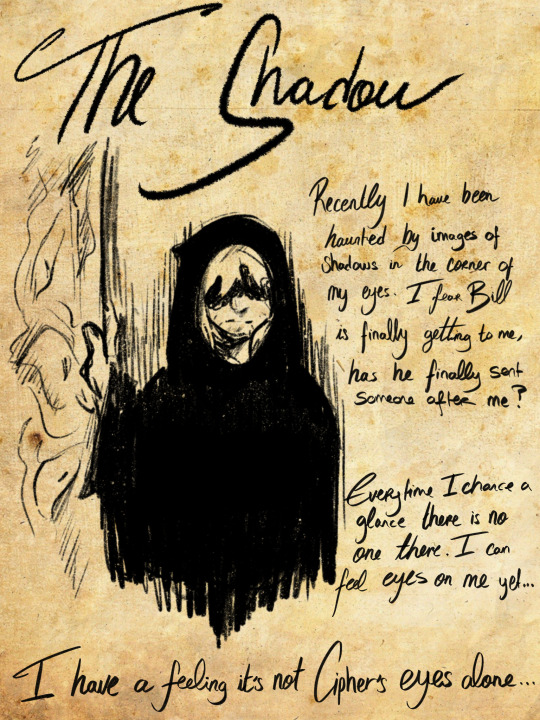 The Shadow
Recently I have been
haunted by images of
Shadows in the corner of
my eyes. I fear Bill
is finally getting to me,
has he finally sent
someone after me?
Everytime I chance a
glance there is no
one there. I can
feel eyes on me yet...
I have a feeling it's not Cipher's eyes alone...